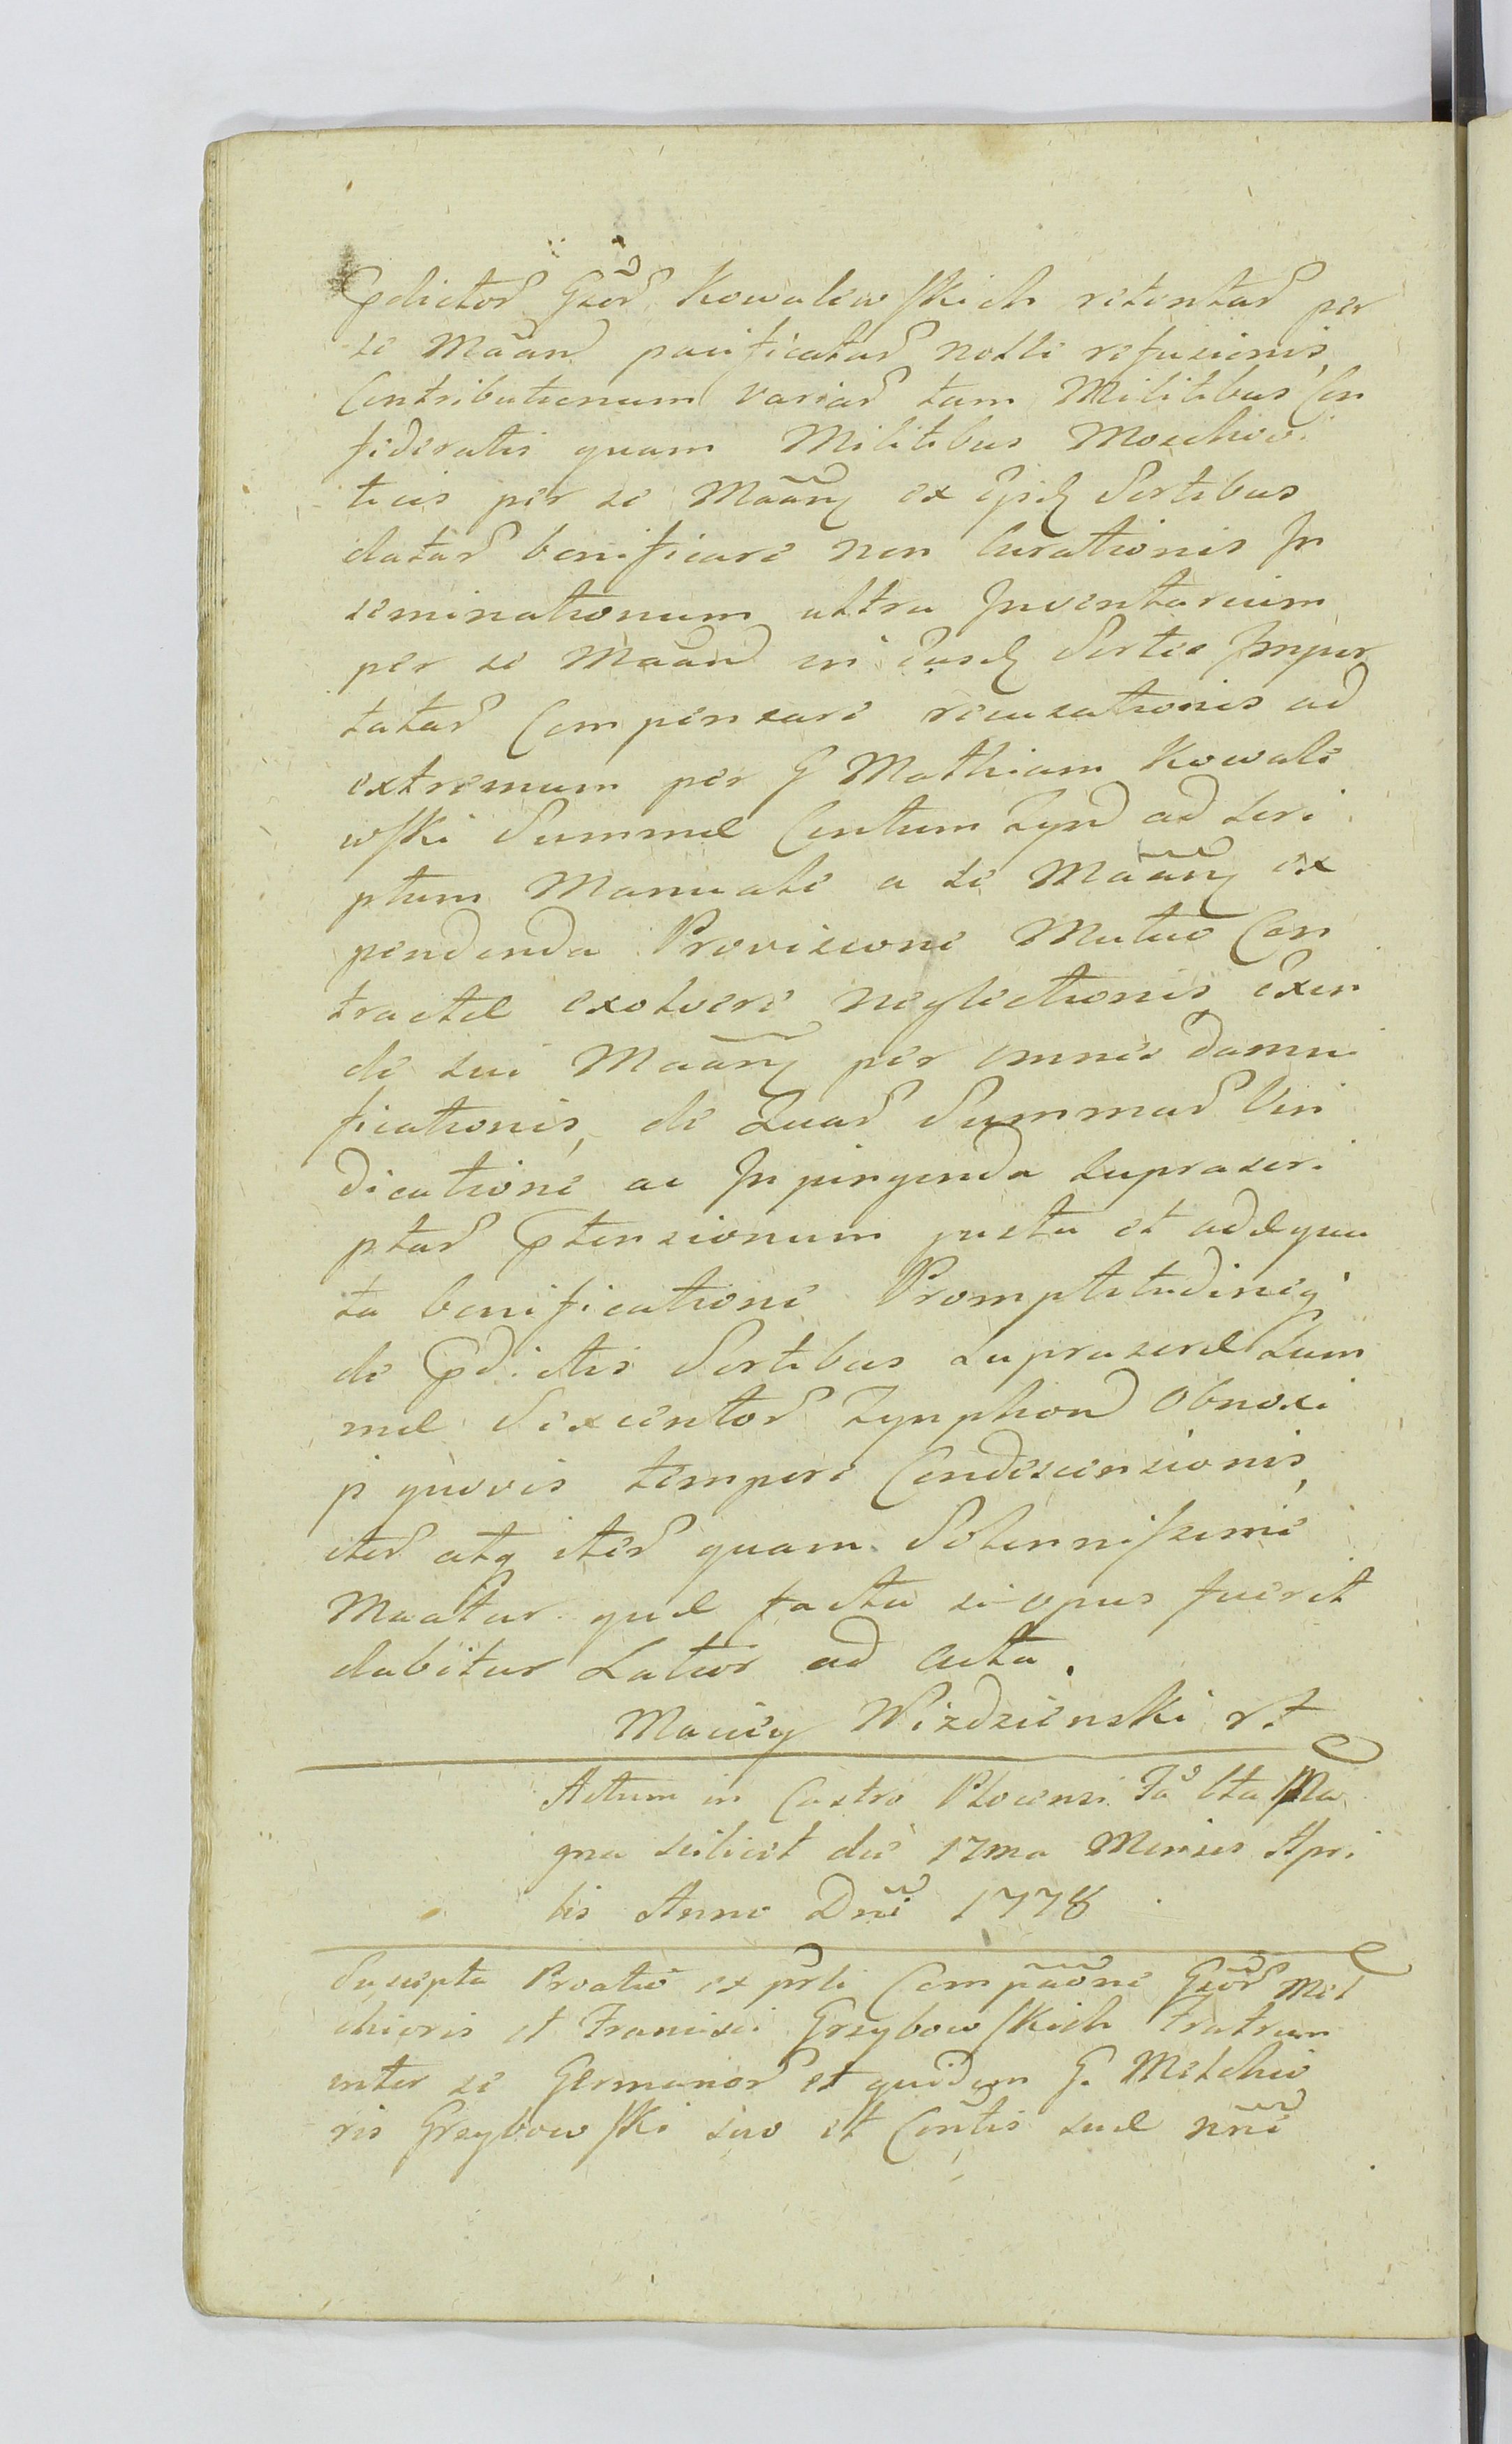 Pdictor Gser Kowalewskich retentar per
se Mãan pacificatar nolle refusionis,
Contributionum variar tam Militibus Con
federatis quam Militibus Moschovi
ticis per se Mããn ex ijsd Sortibus
datar bonificare non Curationis In
seminationum ultra Inventarium
per se Mããn in easd Sortes Impor
tatar Compensare recusationis ad
extremum per G Mathiam Kowale
wski Summæ Centum Tynf ad scri
ptum Manuale a se Mããn ex
pendenda Provisione Mutuo Con
tractæ exolvere neglectionis, exin
de sui Mããn per omnes damni
ficationis, de Quar Summar Vin
dicatione ac Inpingenda suprascri
ptar Ptensionum justa et adæqua
ta bonificatione Promptitudineq
de Pdictis Sortibus suprascræ Sum
mæ Sexcentor Tynphon Obnoxi
js quovis tempore Condescensionis,
iter atq iter quam Solennissime
Maatur quæ facta si opus fuerit
dabitur Latior ad Acta.
Maciey Wizdzienski r.t
Actum in Castro Plocensi Fa 6ta Ma
gna scilicet die 17ma Mensis Apri
lis Anno Dñi 1778
Suscepta Proatio ex prti Compãone Gser Mel
chioris et Francisci Grzybowskich Fratrum
inter se Germanor et quidem G. Melchio
ris Grzybowski suo et Contis suæ nñe